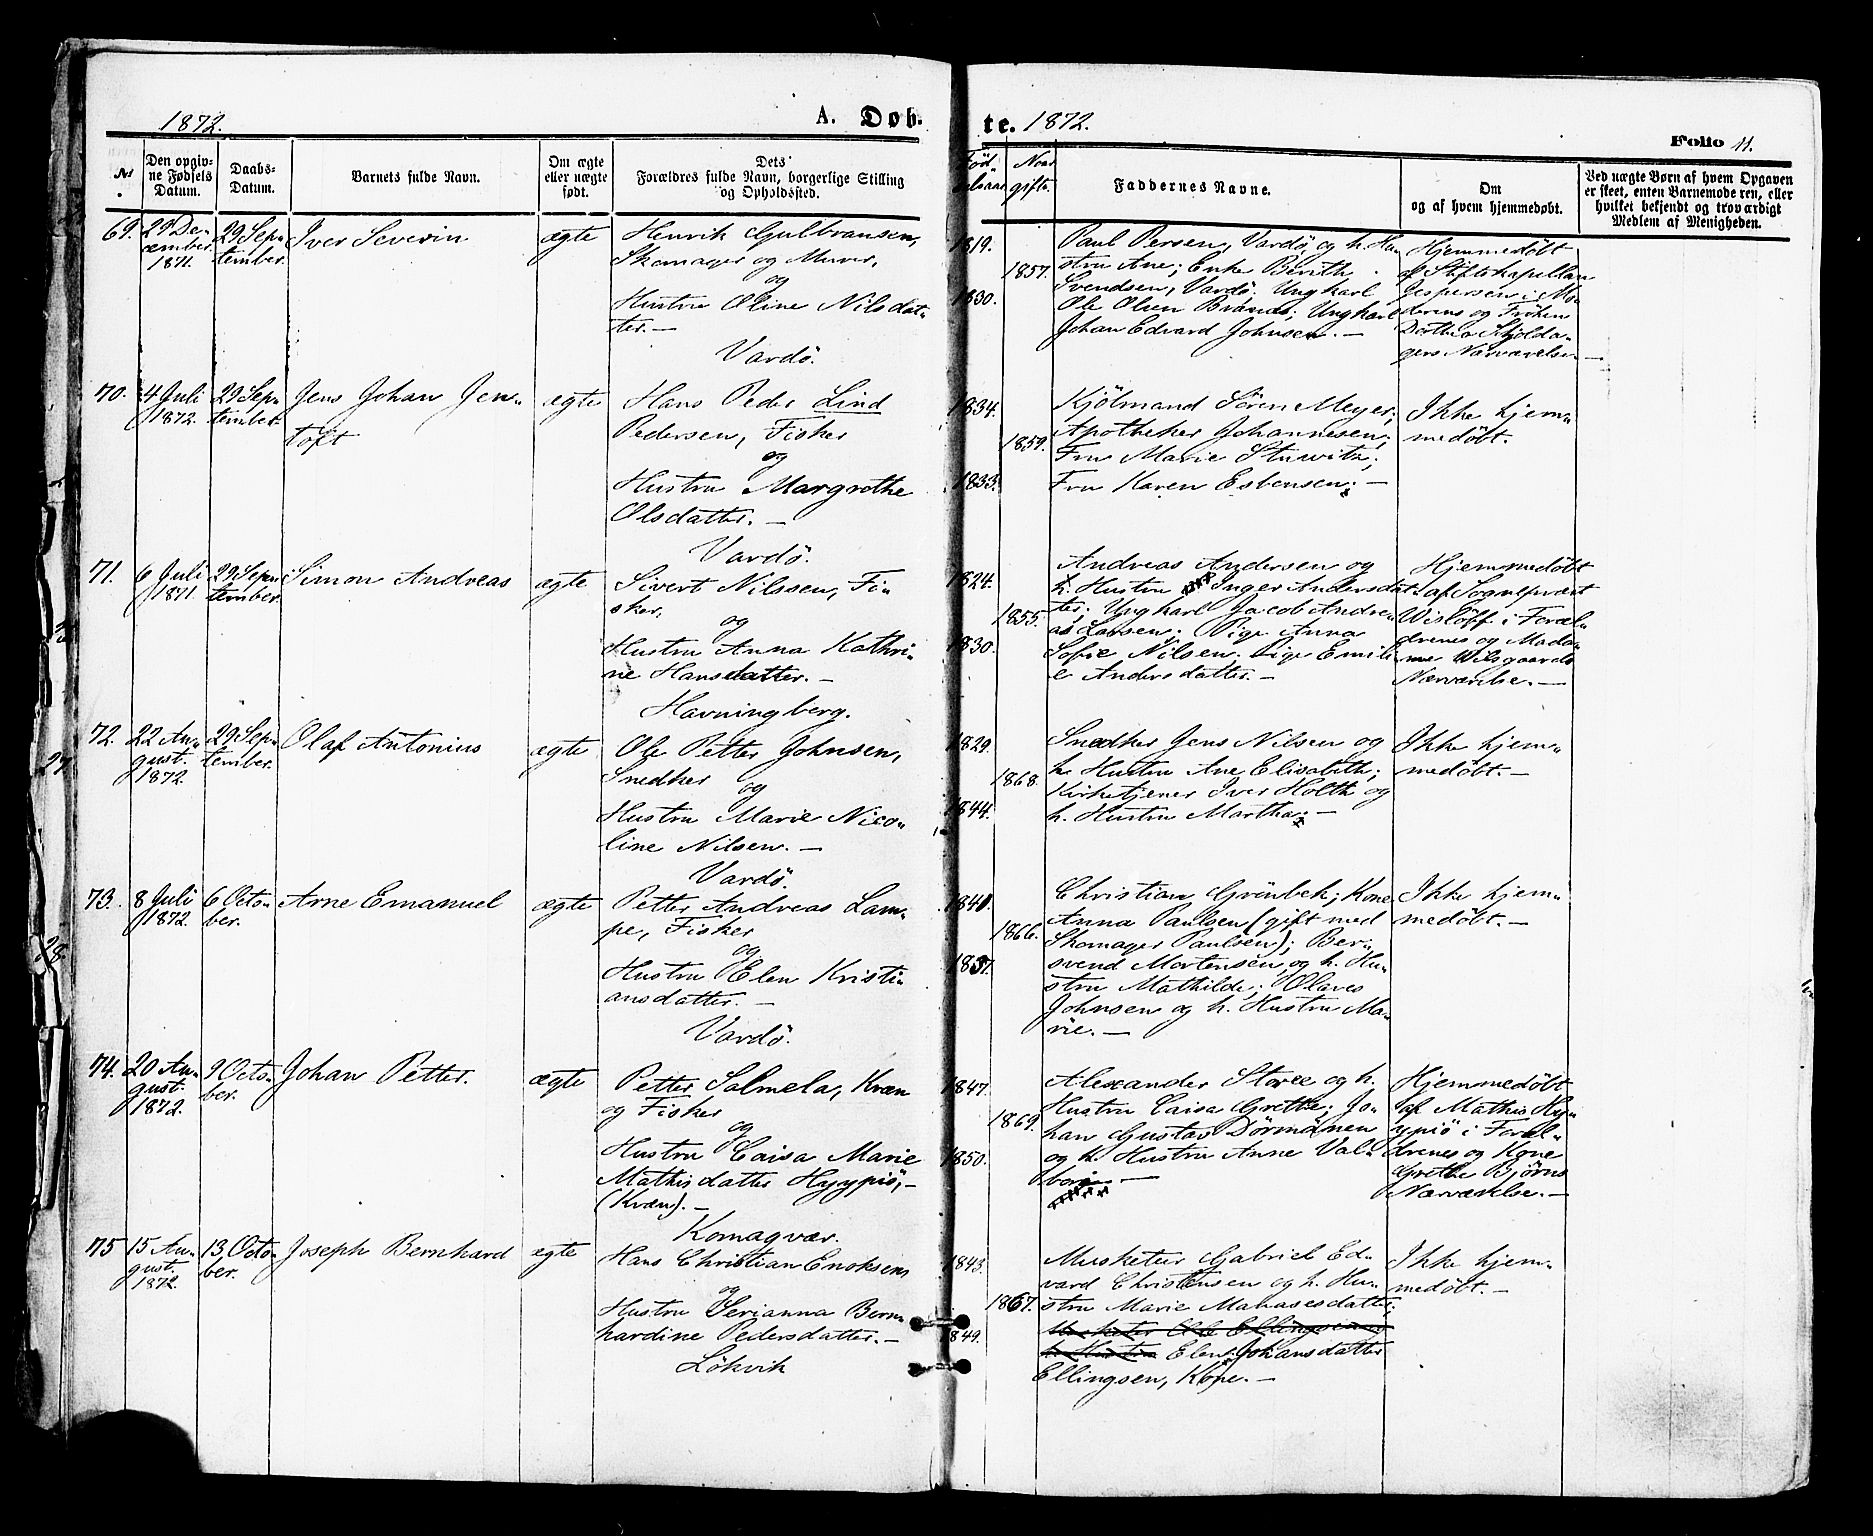 1872.
A. Døb-
te. 1872.
Folio 11.
No.
Den opgiv-
ne Fødsels
Datum.
Daabs-
Datum.
Barnets fulde Navn.
Om ægte
eller uægte
født.
Dets
Forældres fulde Navn, borgerlige Stilling
og Opholdssted.
Faddernes Navne.
Om
og af hvem hjemmedøbt.
Ved uægte Børn af hvem Opgaven
er skeet, enten Barnemoderen, eller
hvilket bekjendt og troværdigt
Medlem af Menigheden.
69.
29 De-
cember
1871.
29 Sep-
tember.
Iver Severin
ægte
Henrik Gulbransen,
Skomager og Murer,
og
Hustru Oline Nilsdat-
ter. —
Vardö.
1819.
1857.
1830.
Paul Persen, Vardö og h. Hu-
stru Ane; Enke Berith
Svendsen, Vardö. Ungkarl
Ole Olsen Brånäs; Ungkarl
Johan Edvard Johnsen. —
Hjemmedöbt
af Stiftskapellan
Jespersen i Mo-
derens og Fröken
Dorthea Skjolda-
gers Nærværelse. —
70.
4 Juli
1872.
29 Sep-
tember.
Jens Johan Jen-
toft
ægte
Hans Peder Lind
Pedersen, Fisker
og
Hustru Margrethe
Olsdatter. —
Vardö.
1834.
1859.
1833.
Kjölmand Sören Meyer;
Apotheker Johannesen;
Fru Marie Stuwitz;
Fru Karen Esbensen. —
Ikke hjem-
medöbt.
71.
6 Juli
1871.
29 Sep-
tember.
Simon Andreas
ægte
Sivert Nilssen, Fi-
sker,
og
Hustru Anna Kathri-
ne Hansdatter. —
Havningberg.
1824.
1855.
1830.
Andreas Andersen og
h. Hustru Inger Andersdat-
ter; Ungkarl Jacob Andre-
as Larsen; Pige Anna
Sofie Nilsen. Pige Emili-
e Andersdatter. —
Hjemmedöbt
af Sognepræst
Wislöff i Foræl-
drenes og Mada-
me Wilsgaards
Nærværelse. —
72.
22 Au-
gust.
1872.
29 Sep-
tember.
Olaf Antonius
ægte
Ole Petter Johnsen,
Snedker
og
Hustru Marie Nico-
line Nilsen. —
Vardö.
1829.
1868.
1844.
Snedker Jens Nilsen og
h. Hustru Ane Elisabeth;
Kirketjener Iver Holth og
h. Hustru Martha. —
Ikke hjem-
medöbt. —
73.
8 Juli
1872.
6 Octo-
ber.
Arne Emanuel
ægte
Petter Andreas Lam-
pe, Fisker
og
Hustru Elen Kristi-
ansdatter. —
Vardö.
1841.
1866.
1837.
Christian Grönbek; Kone
Anna Paulsen (gift med
Skomager Paulsen); Ber-
svend Mortensen og h. Hu-
stru Mathilde; Olaves
Johnsen og h. Hustru Ma-
rie. —
Ikke hjem-
medöbt. —
74.
20 Au-
gust.
1872.
9 Octo-
ber.
Johan Petter.
ægte
Petter Salmela, Kvæn
og Fisker
og
Hustru Caisa Marie
Mathisdatter Hyypiö, —
(Kvæn). —
Komagvær.
1847.
1869.
1850.
Alexander Store og h.
Hustru Caisa Grethe; Jo-
han Gustav Dörmänen
og h. Hustru Anne Val-
borg —
Hjemmedöbt
af Mathis Hy-
ypiö i Foræl-
drenes og Kone
Grethe Bjørns
Nærværelse. —
75
15 Au-
gust.
1872.
13 Octo-
ber.
Joseph Bernhard
ægte
Hans Christian Enoksen
og
Hustru Serianna Bern-
hardine Pedersdatter. —
Lökvik
1843.
1867.
1849.
Musketer Gabriel Ed-
vard Christensen og h. Hu-
stru Marie Manasesdatter;
Musketer Ole Ellingsen og
h. Hustru Elen Johansdatter
Ellingsen, Kone. —
Ikke hjem-
medöbt. —